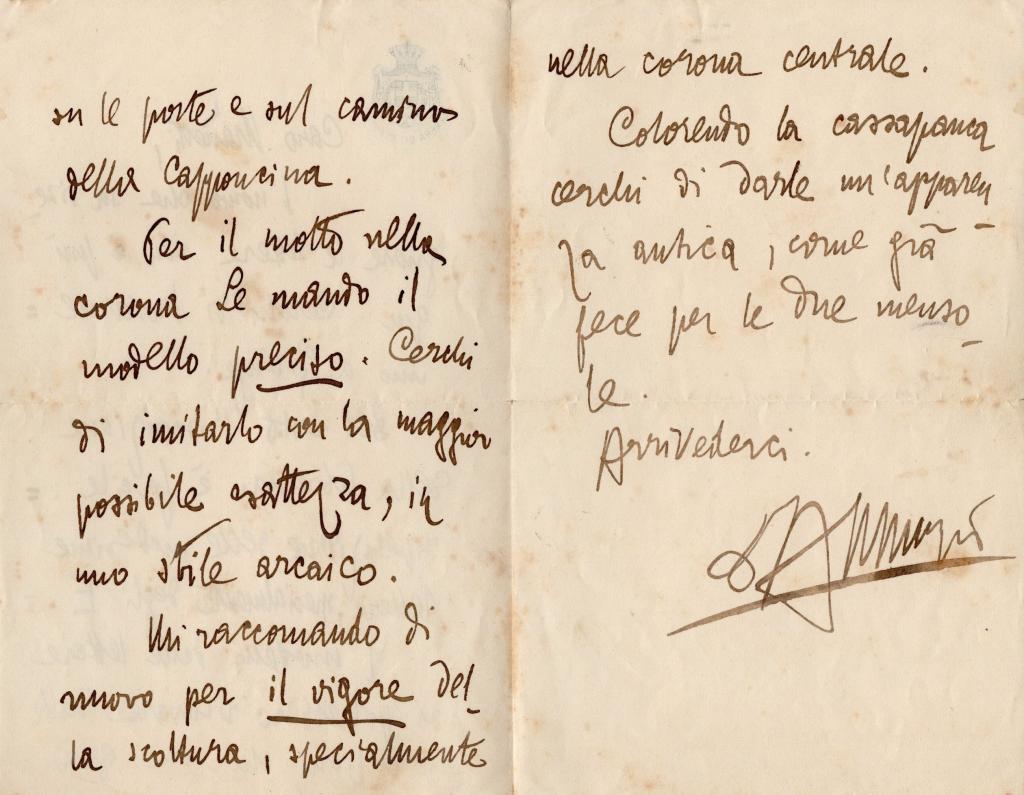 su le porte e sul camino
della Capponcina.
Per il motto nella
corona Le mando il
modello preciso. Cerchi
di imitarlo con la maggior
possibile esattezza, in
uno stile arcaico.
Mi raccomando di
nuovo per il vigore del
la scoltura, specialmente
nella corona centrale.
Colorendo la cassapanca
cerchi di darle un'apparen
za antica, come già
fece per le due menso
le.
Arrivederci.
d'Annunzio